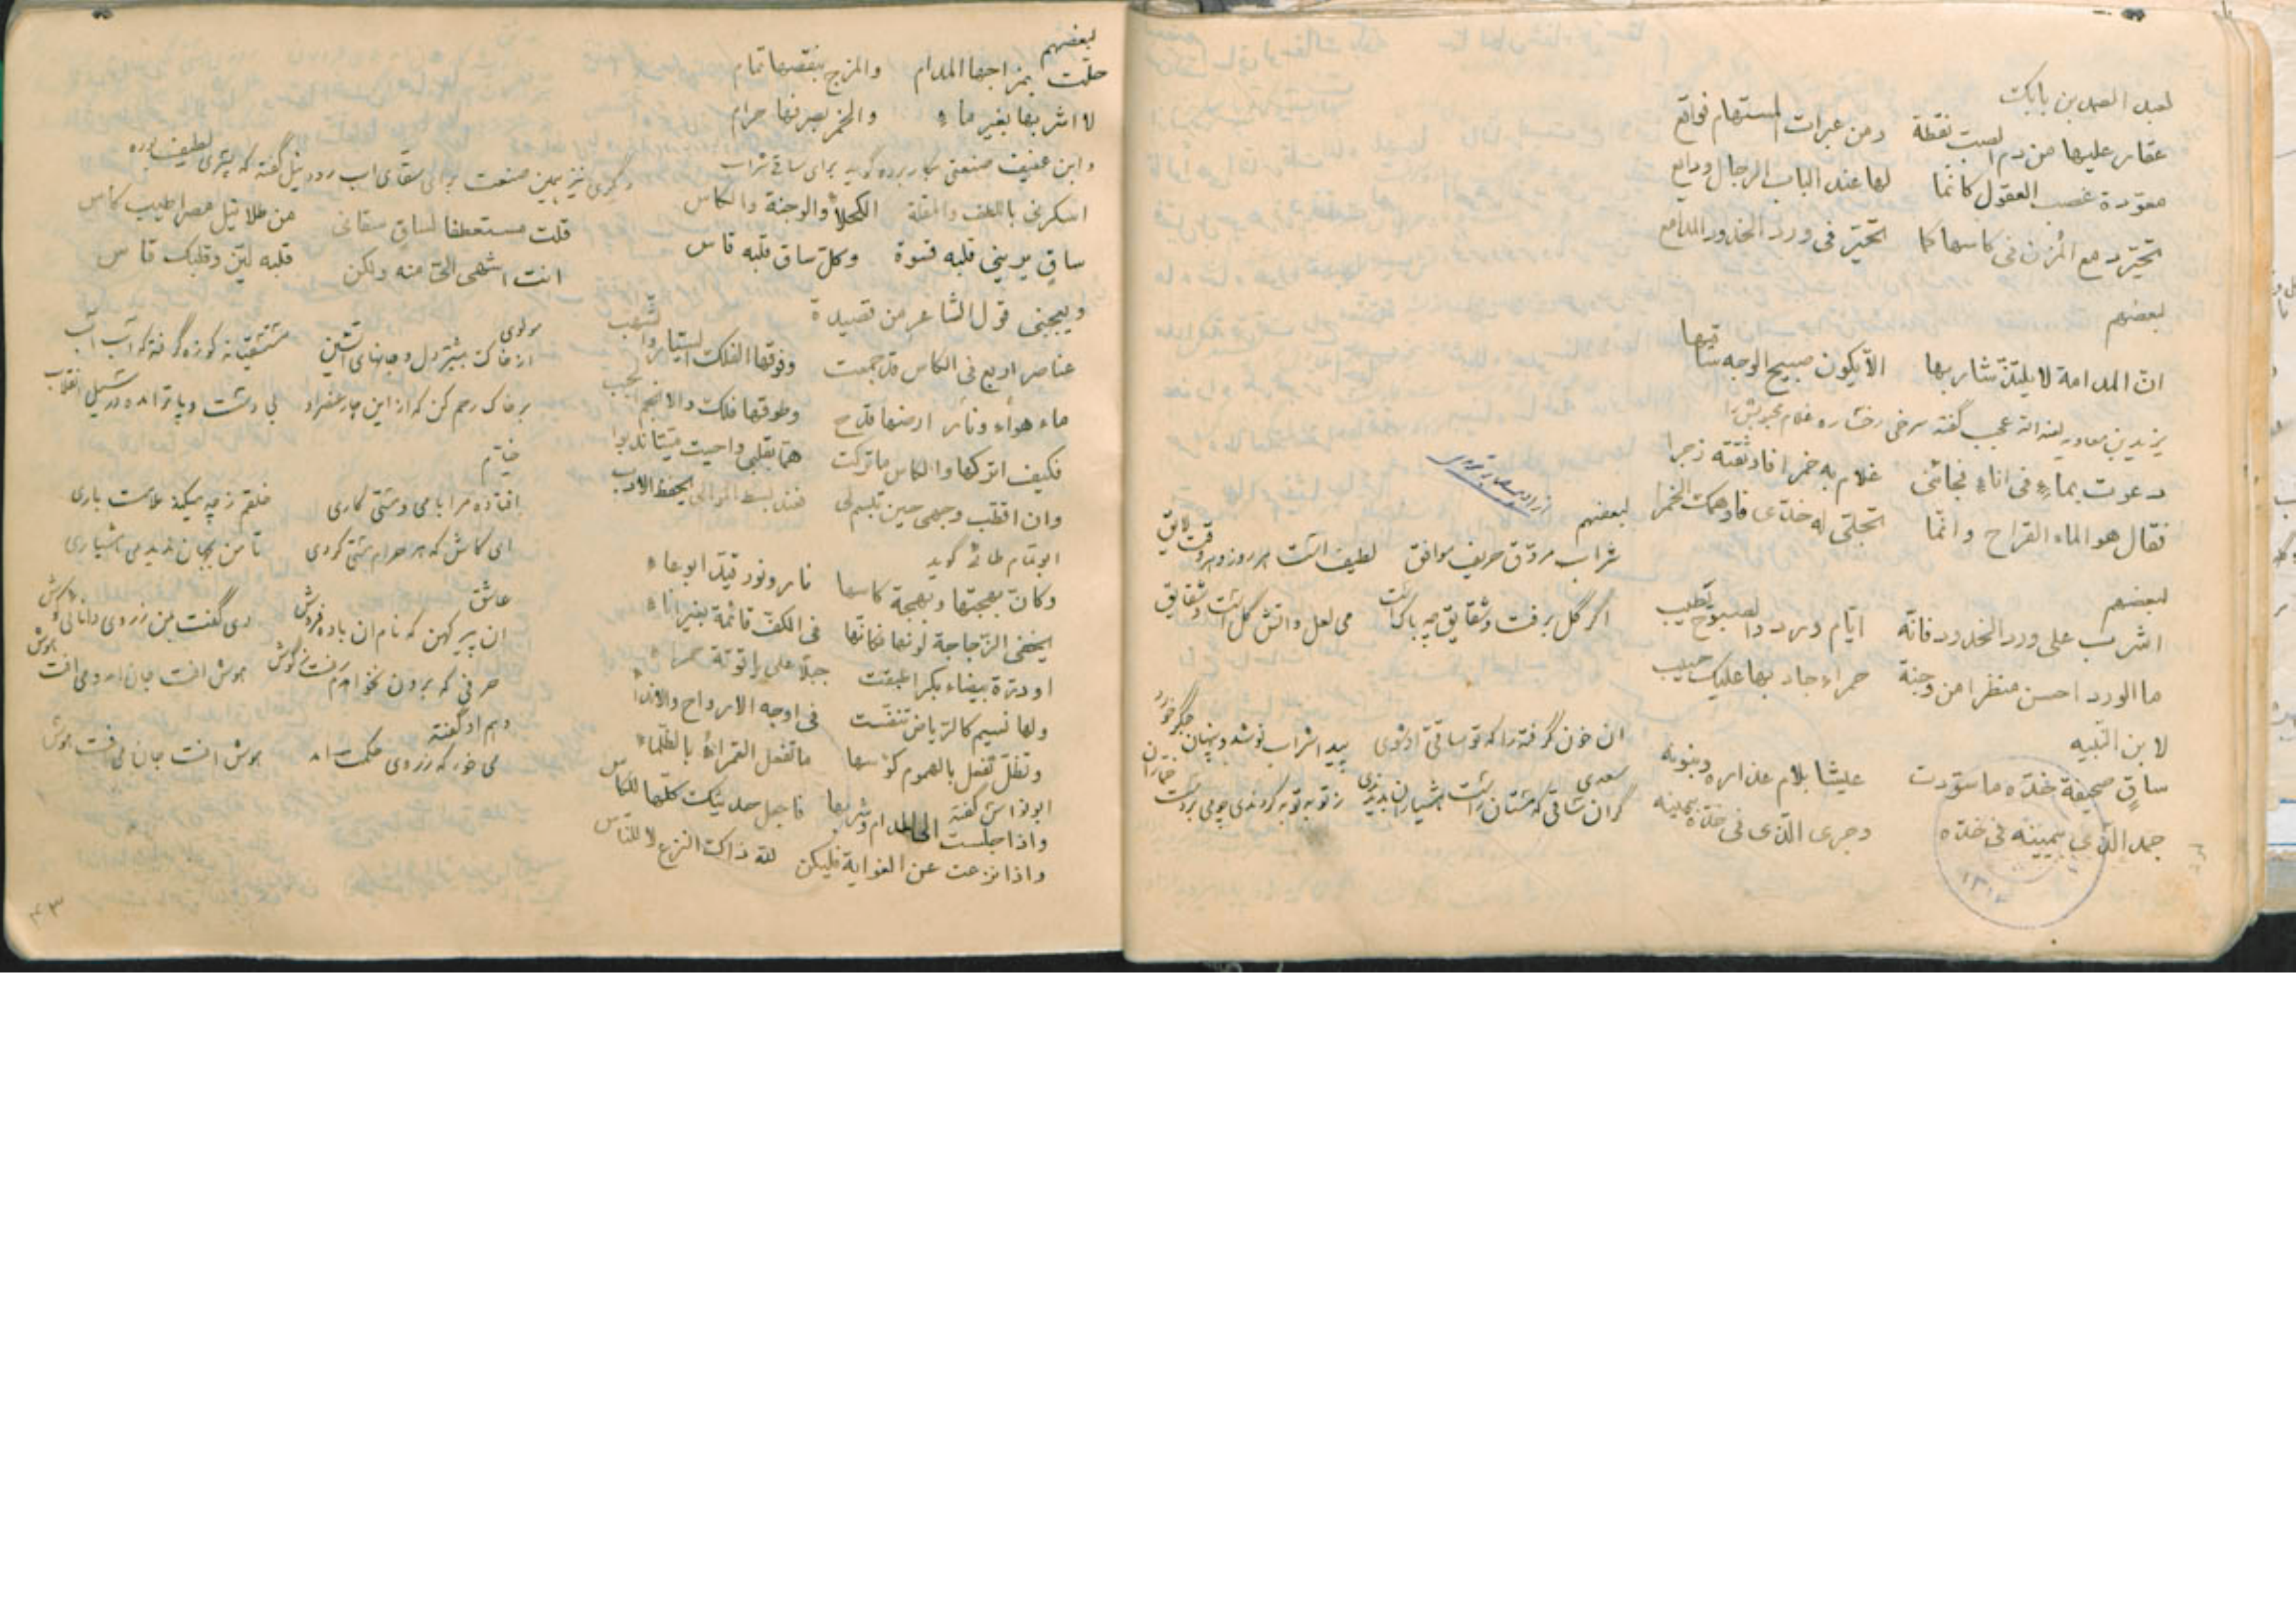 لعبد الصمد بن بابک
عقار علیها من دم الصب نقطة ومن عبرات المستهام فواقع
معوّدة غصب العقول کانّما لها عند الباب الرجال ودایع
تحیّر دمع المزن فی کاسها کما تحیّر فی ورد الخدود المدامع
لبعضهم
انّ المدامة لا یلتذّ شاربها الّا یکون صبیح الوجه ساقیها
یزید بن معاویه لعنه الله عجب گفته سرخی رخساره غلام محبوبش را
دعوت بماء فی اناء فجائنی غلام به خمرا فاوثقته زجرا
فقال هو الماء القراح وانّما تجلّی له خدّی فاوهمک الخمرا
لبعضهم
اشرب علی ورد الخدود فانّه ایّام ورد والصبوح تطیب
ما الورد احسن منظرا من وجنة حمراء جاد بها علیک حبیب
لابن النّبیه
ساقٍ صحیفة خدّه ما سوّدت عبثا بلام عذاره ونونه
جمد الّذی بیمینه فی خدّه وجری الّذی فی خدّه بیمینه
لبعضهم
شراب مروّق حریف موافق لطیف است هر روز و هر وقت لایق
اگر گل برفت و شقایق چه باک است می لعل و اتش گل است و شقایق
ان خون گرفته را که تو ساقی او شوی پیدا شراب نوشد و پنهان جگر خورد
سعدی
گران ساقی که مستان راست هشیاران بدیدندی ز توبه توبه کردندی چو می بر دست خمّاران
لبعضهم
حلّت بمزاجها المدام والمزج بنقصها تمام
لا اشربها بغیر ماء والخمر بصرفها حرام
وابن عفیف صنعتی بکار برده گوید برای ساقی شراب
اسکرنی باللفظ والمقلة الکحلاء والوجنة والکاس
ساقٍ یرینی قلبه قسوة وکلّ ساق قلبه قاس
ویعجبنی قول الشاعر من قصیدة
عناصر اربع فی الکاس قد جمعت وفوقها الفلک السیّار والشهب
ماء هواء ونار ارضها قدح وطوقها فلک والانجم الحبب
فکیف اترکها والکاس ما ترکت
وان اقطب وجهی حین تبسم لی فعند بسط الموالی یحفظ الادب
ابوتمام طائی گوید
وکانّ بهجتها وبهجة کاسها نار ونور قیّد ابوعاء
یخفی الزّجاجة لونها فکانّها فی الکفّ قائمة بغیر اناء
او درّة بیضاء بکرا عبقت حبلا علی یاقوتة حمراء
ولها نسیم کالرّیاض تنفّست فی اوجه الارواح والانداء
وتظلّ تفعل بالهموم کوٴسها ما تفعل القمراء بالظّلماء
ابونواس گفته
واذا جلست الی المدام وشربها فاجعل حدیثک کلّها للکاس
واذا نزعت عن الغوایة فلیکن للّه ذاک النزع لا للنّاس
دگری نیز همین صنعت برای سقّای اب رود نیل گفته که بشری لطیف بوده
قلت مستعطفا لساق سقانی من طلا نیل مصر اطیب کاس
انت اشهی الیّ منه ولکن قلبه لیّن وقلبک قاس
مولوی
از خاک بیشتر دل و جانهای اتشین مستسقیانه کوزه گرفته که آب آب
بر خاک رحم کن که از این چار عنصر او بی دست و پاتر امده در سیل انقلاب
خیّام
افتاده مرا با می و مستی کاری خلقم ز چه میکند ملامت باری
ای کاش که هر حرام مستی کردی تا من بجهان ندیدمی هشیاری
عاشق
ان پیر کهن که نام ان باده فروش دی گفت بمن ز روی دانائی دوش
حرفی که برون نخواهدم رفت ز گوش هوش افت جان امد و می افت هوش
وهم او گفته
می خور که ز روی حکمت امد هوش افت جان می افت هوش